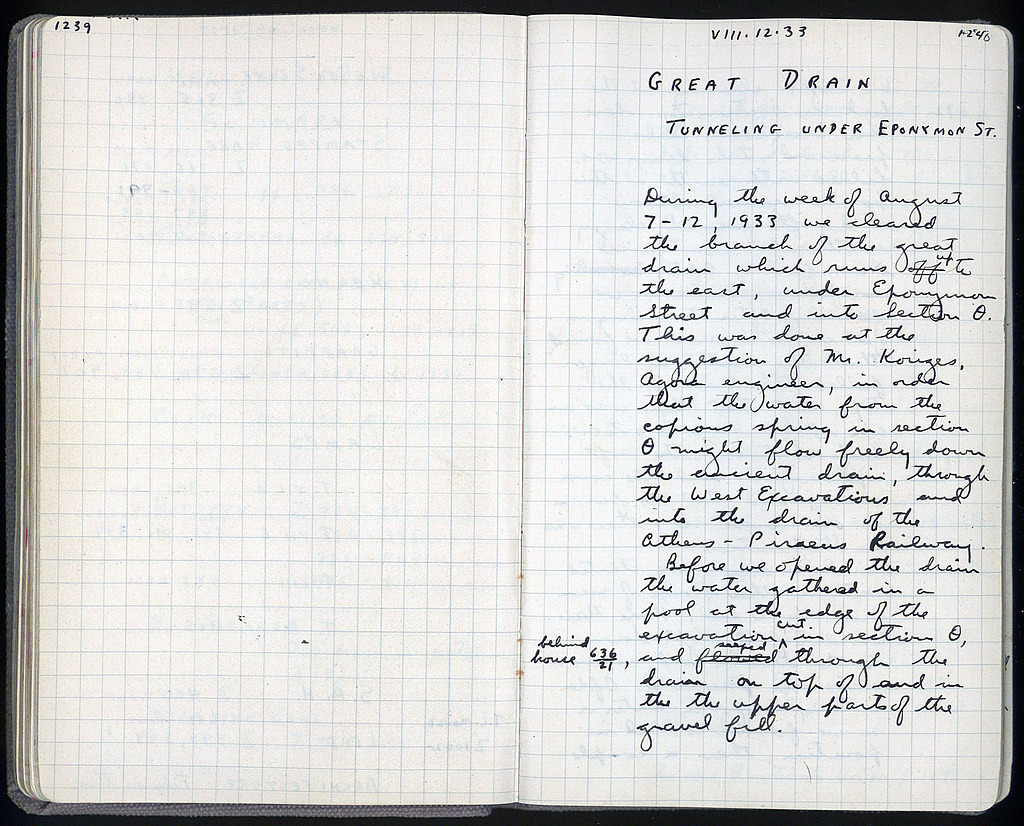 1239
VIII.12.33
1240
GREAT DRAIN
TUNNELING UNDER EPONYMON ST.
During the week of August
7-12, 1933 we cleared
the branch of the great
drain which runs off up to
the east, under Eponymon
Street and into Section Θ.
This was done at the
suggestion of Mr. Konzes,
Agora engineer, in order
that the water from the
copious spring in section
Θ might flow freely down
the ancient drain, through
the West Excavations and
into the drain of the
Athens - Piraeus Railway.
Before we opened the drain
the water gathered in a
pool at the edge of the
excavation cut in section Θ,
behind
house 636/21, and flowed seeped through the
drain on top of and in
the the upper parts of the
gravel fill.